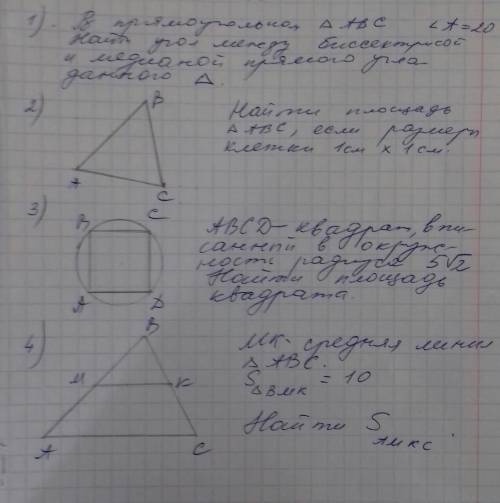 1). В прямоугольном △ ABC ∠A=20
Найти угол между биссектрисой
и медианой прямого угла
данного △.
2)
B
A
C
Найти площадь
△ABC, если размеры
клетки 1см x 1см.
3)
B
C
A
D
ABCD- квадрат, впи-
санный в окруж-
ности радиуса 5√2
Найти площадь
квадрата.
4)
B
M
K
A
C
MK- средняя линия
△ ABC.
S△BMK = 10
Найти S AMKC.